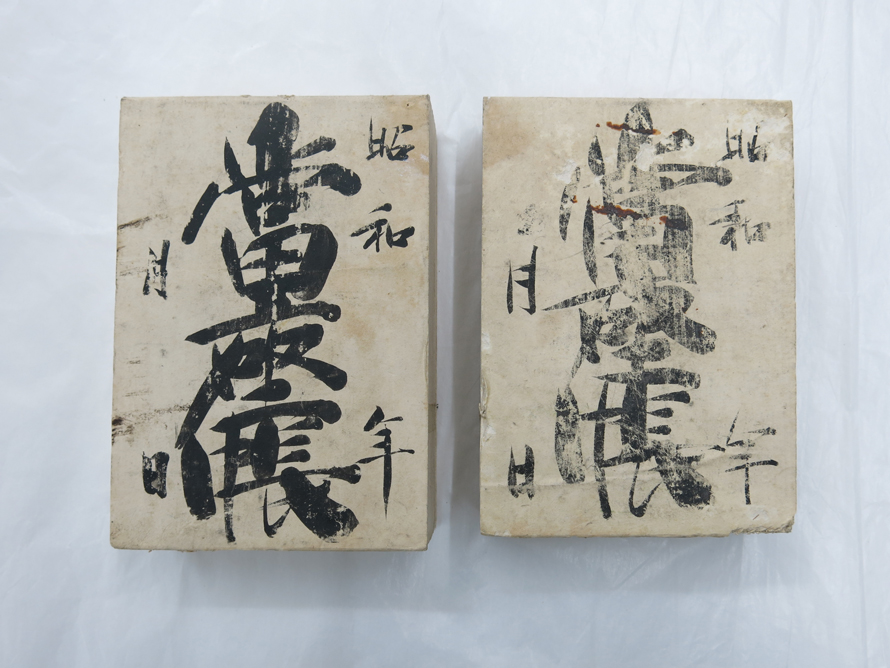 昭和 年
當座帳
月 日
昭和 年
當座帳
月 日